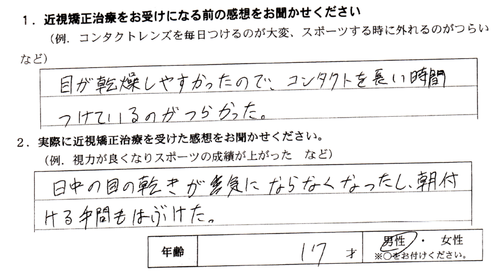 １．近視矯正治療をお受けになる前の感想をお聞かせください
（例．コンタクトレンズを毎日つけるのが大変、スポーツする時に外れるのがつらい
など）
目が乾燥しやすかったので、コンタクトを長い時間
つけているのがつらかった。
２．実際に近視矯正治療を受けた感想をお聞かせください。
（例．視力が良くなりスポーツの成績が上がった　など）
日中の目の乾きが気にならなくなったし、朝付
ける手間もはぶけた。
年齢　17　才　男性・女性
※○をお付けください。